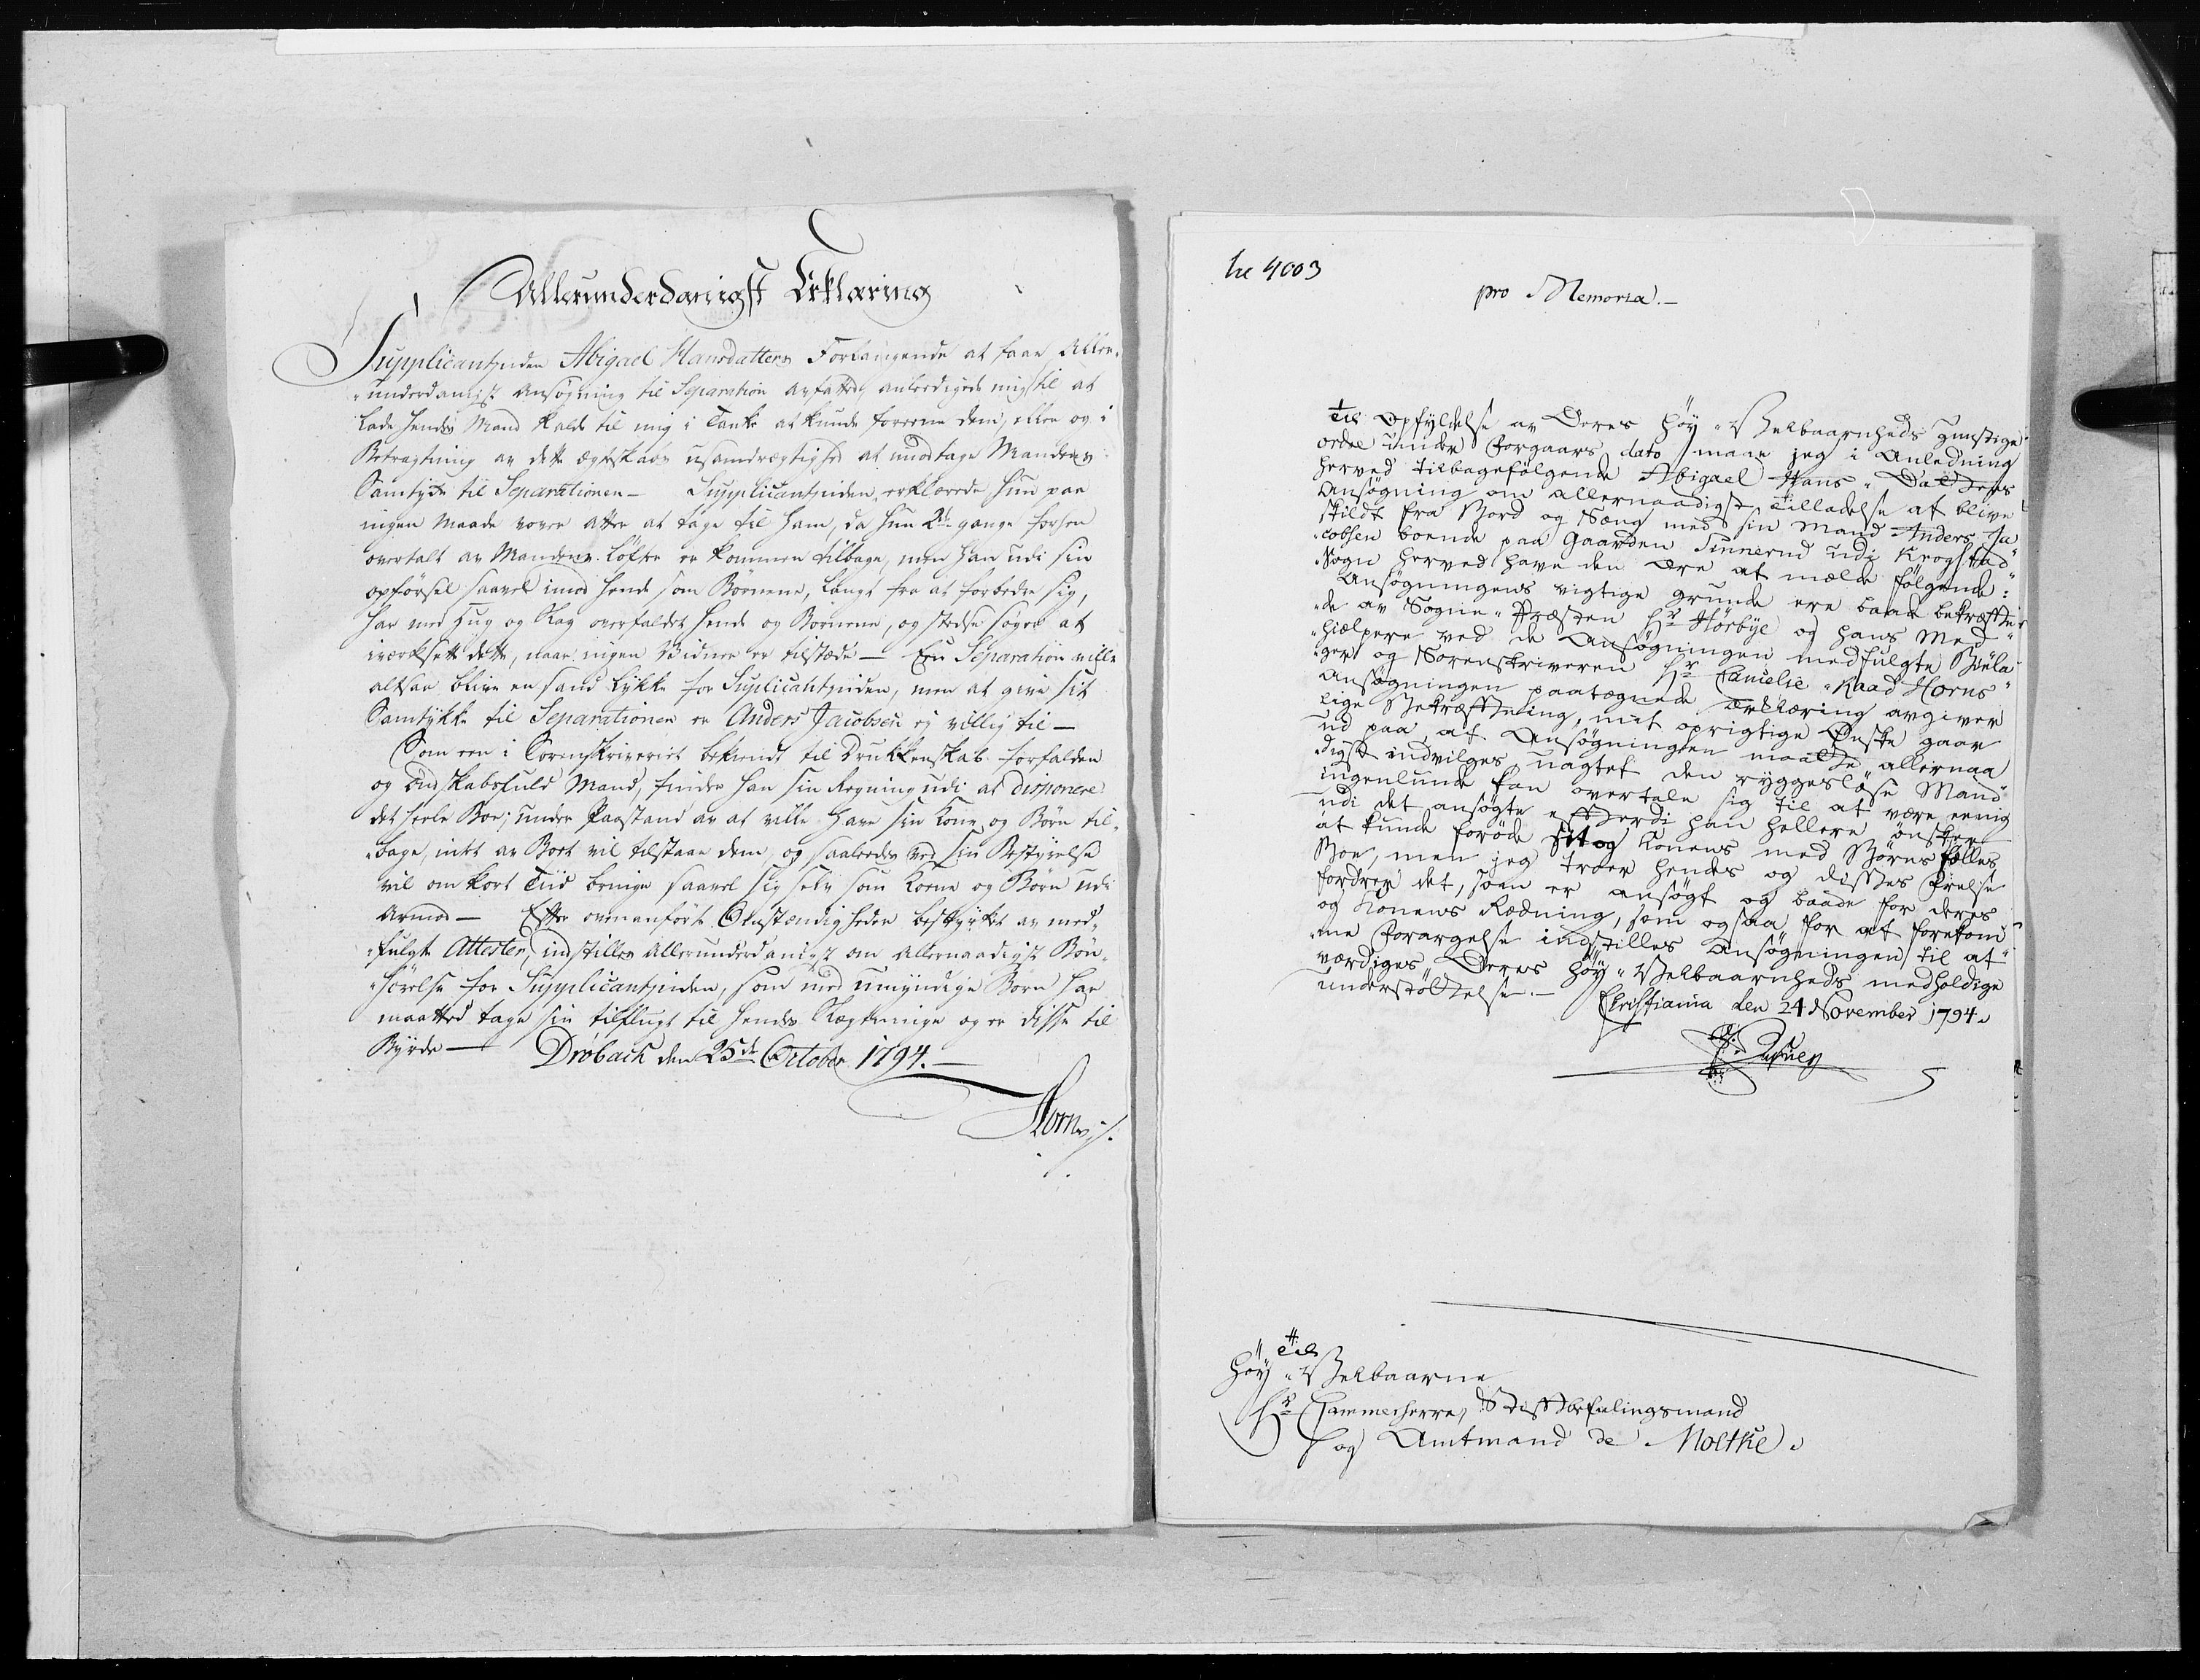 Allerunderdanigst Erklæring
Supplicantinden Abigael Hansdatters Forlangende at faae Aller„
„underdanigst Ansøgning til Separation anleedigede mig til at
lade hendes Mand kalde til mig i Tanke at kunde foreene dem, eller og i
Betragtning av dette ægteskabs usamdrægtighed at modtage Mandens
Samtykke til Separationen – Supplicantinden erklærede hun paa
ingen Maade vover atter at tage til ham, da hun 2de gange forhen
overtalt av Mandens Løfter er kommen tilbage, men han udi sin
opførsel saavel imod hende som Børnene, langt fra at forbedre sig,
har med Hug og Slag overfaldet hende og Børnene, og stedse søger at
iværksette dette, naar ingen Vidner er tilstæde – En Separation ville
altsaa blive en sand Lykke for Suplicantinden, men at give sit
Samtykke til Separationen er Anders Jacobsen ej villig til –
Som een i Sorenskriveriet bekiendt til Drukkenskab forfalden
og Mand, finder han sin Regning udi at disponere
det heele Boe; under Paastand av at ville have sin Kone og Børn til„
„bage, intet av Boet vil tilstaae dem, og saaledes ved sin Bestyrelse
vil om kort Tiid bringe saavel sig selv som Kone og Børn udi
Armod – Efter ovenanførte Omstændigheder bestyrket av med„
„fulgte Attester, indstilles Allerunderdanigst om Allernaadigst Bøn„
„hørelse for Supplicantinden, som med umyndige Børn har
maatted tage sin tilflugt til hendes Slægtninge og er disse til
Byrde – Drøbach den 25de October 1794. –
Horn
pro Memoria. –
Til Opfyldelse av Deres Høy„Velbaarnheds gunstige
ordre under Forgaars dato maae jeg i Anledning
herved tilbagefølgende Abigael Hans„Datters
Ansøgning om allernaadigst Tilladelse at blive
skildt fra Bord og Seng med sin Mand Anders Ja„
„cobsen boende paa Gaarden Tinnerud udi Krogstad
Sogn herved have den Ære at melde følgende:
Ansøgningens vigtige grunde ere baade bekræfte„
„de av Sogne„Præsten Hr Hørbye og hans Med„
„hielpere ved de Ansøgningen medfulgte Biela„
„ger og Sorenskriveren Hr Cancelie„Raad Horns
Ansøgningen paategnede Erklæring avgiver
lige Bekræftning, mit oprigtige Ønske gaar
ud paa at Ansøgningen maatte allernaa
„digst indvilges uagtet den ryggesløse Mand
ingenlunde kan overtale sig til at være eenig
udi det ansøgte efterdi han hellere ønsker
at kunde forøde sit og Konens med Børns fælles
Boe, men jeg troer hendes og disses Frelse
fordrer det, som er ansøgt og baade for deres
og Konens Redning, som ogsaa for at forekom„
„me Forargelse indstilles Ansøgningen til at
værdiges Deres Høy„Velbaarnheds medholdige
understøttelse. –
Christiania den 24 November 1794.
Til
Høy„Velbaarne
Hr Cammerherre, Stiftbefalingsmand
og Amtmand de Moltke.